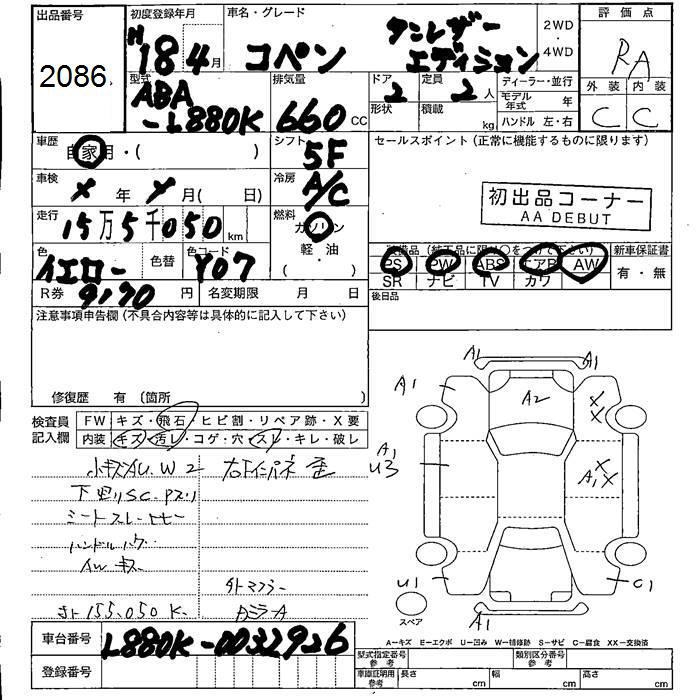 出品番号
2086
初度登録年月
H18 4月
車名・グレード
コペン
タンレザー
エディション
2WD
・
4WD
評価点
RA
外装 内装
C C
型式
ABA
-L880K
排気量
660 CC
ドア 2
形状
定員 2 人
積載 kg
ディーラー・並行
モデル年式 年
ハンドル 左・右
車歴
自家用・( )
シフト
5F
セールスポイント (正常に機能するものに限ります)
車検
X 年 X 月( 日)
冷房
A/C
初出品コーナー
AA DEBUT
走行
15万5千050 km
燃料
ガソリン
軽・油
( )
色
イエロー
色替
色コード
Y07
装備品 (純正品に限り○をつけて下さい)
PS PW ABS エアB AW
SR ナビ TV カワ
新車保証書
有・無
R券 9170 円
名変期限 月 日
後日品
注意事項申告欄 (不具合内容等は具体的に記入して下さい)
修復歴 有 (箇所 )
検査員
記入欄
FW キズ・飛石・ヒビ割・リペア跡・X要
内装 キズ・汚レ・コゲ・穴・スレ・キレ・破レ
小キズAU.W2
シートスレ
AW キズ
外マフラー
155,050K
A1
A1
A1
A2
X
X
A1
U3
X
A1 X
U1
C1
A1
スペア
A-キズ E-エクボ U-凹み W-補修跡 S-サビ C-腐食 XX-交換済
車台番号
L880K-0032926
登録番号
型式指定番号
参考
類別区分番号
参考
車庫証明用
参考
長さ cm
幅 cm
高さ cm